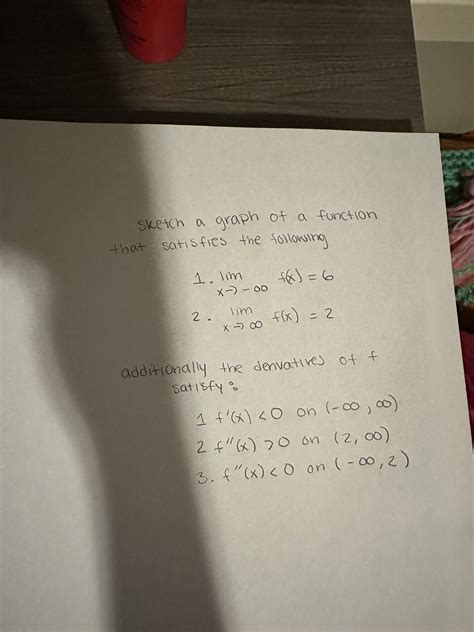 sketch a graph of a function
that satisfies the following
1. lim f(x) = 6
x→ -∞
2. lim f(x) = 2
x→ ∞
additionally the derivatives of f
satisfy:
1 f'(x) <0 on (-∞, ∞)
2 f"(x) >0 on (2, ∞)
3. f"(x) <0 on (-∞, 2)